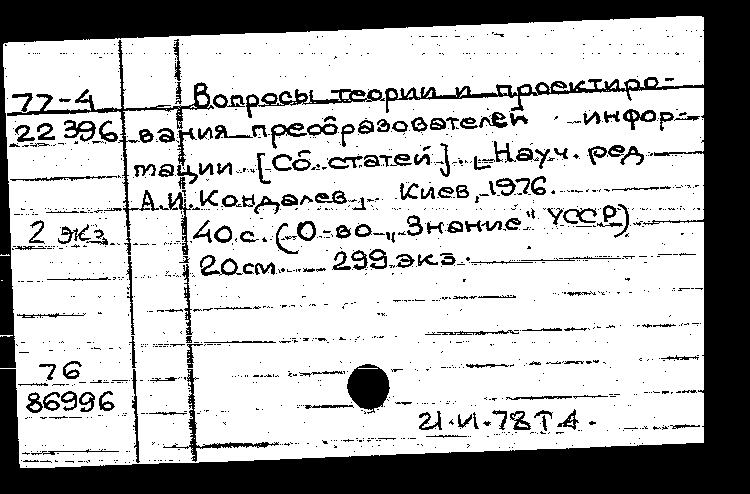 77-4 Вопросы теории и проектиро-
22396 вания преобразователей инфор-
мации [Сб. статей]. [Науч. ред
А.И. Кондалев]. Киев, 1976.
2 экз 40 с. (О-во „Знание" УССР)
20 см. 299 экз.
76
86996
21.И.78 Т 4.